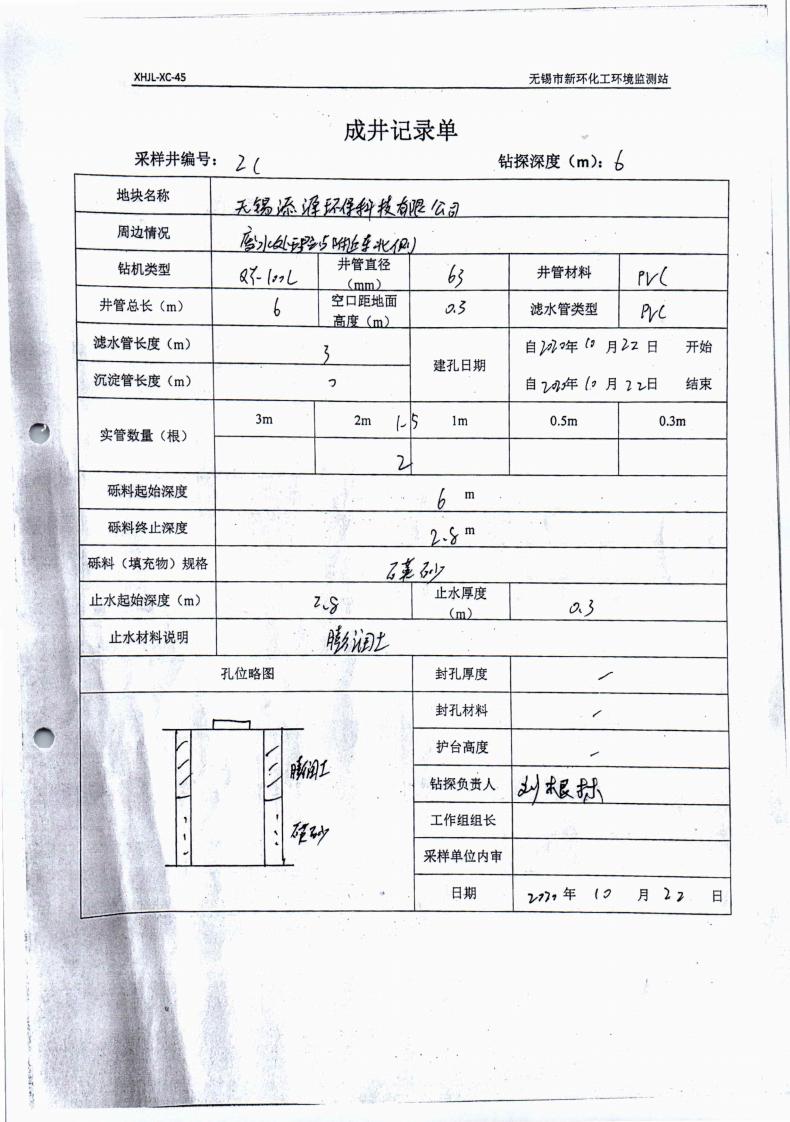 XHJL-XC-45 无锡市新环化工环境监测站
成井记录单
采样井编号： 钻探深度（m）：6
地块名称 无锡添源环保科技有限公司
周边情况
钻机类型 QY-100L 井管直径（mm） 63 井管材料 PVC
井管总长（m） 6 空口距地面高度（m） 0.3 滤水管类型 PVC
滤水管长度（m） 3 建孔日期 自2020年10月22日 开始
沉淀管长度（m） 0 自2020年10月22日 结束
实管数量（根） 3m 2m 1.5 1m 0.5m 0.3m
2
砾料起始深度 6 m
砾料终止深度 2.8 m
砾料（填充物）规格 石英砂
止水起始深度（m） 2.8 止水厚度（m） 0.3
止水材料说明 膨润土
孔位略图 封孔厚度 /
封孔材料 /
护台高度 /
膨润土
钻探负责人 刘根林
工作组组长
石英砂
采样单位内审
日期 2020年 10 月 22 日